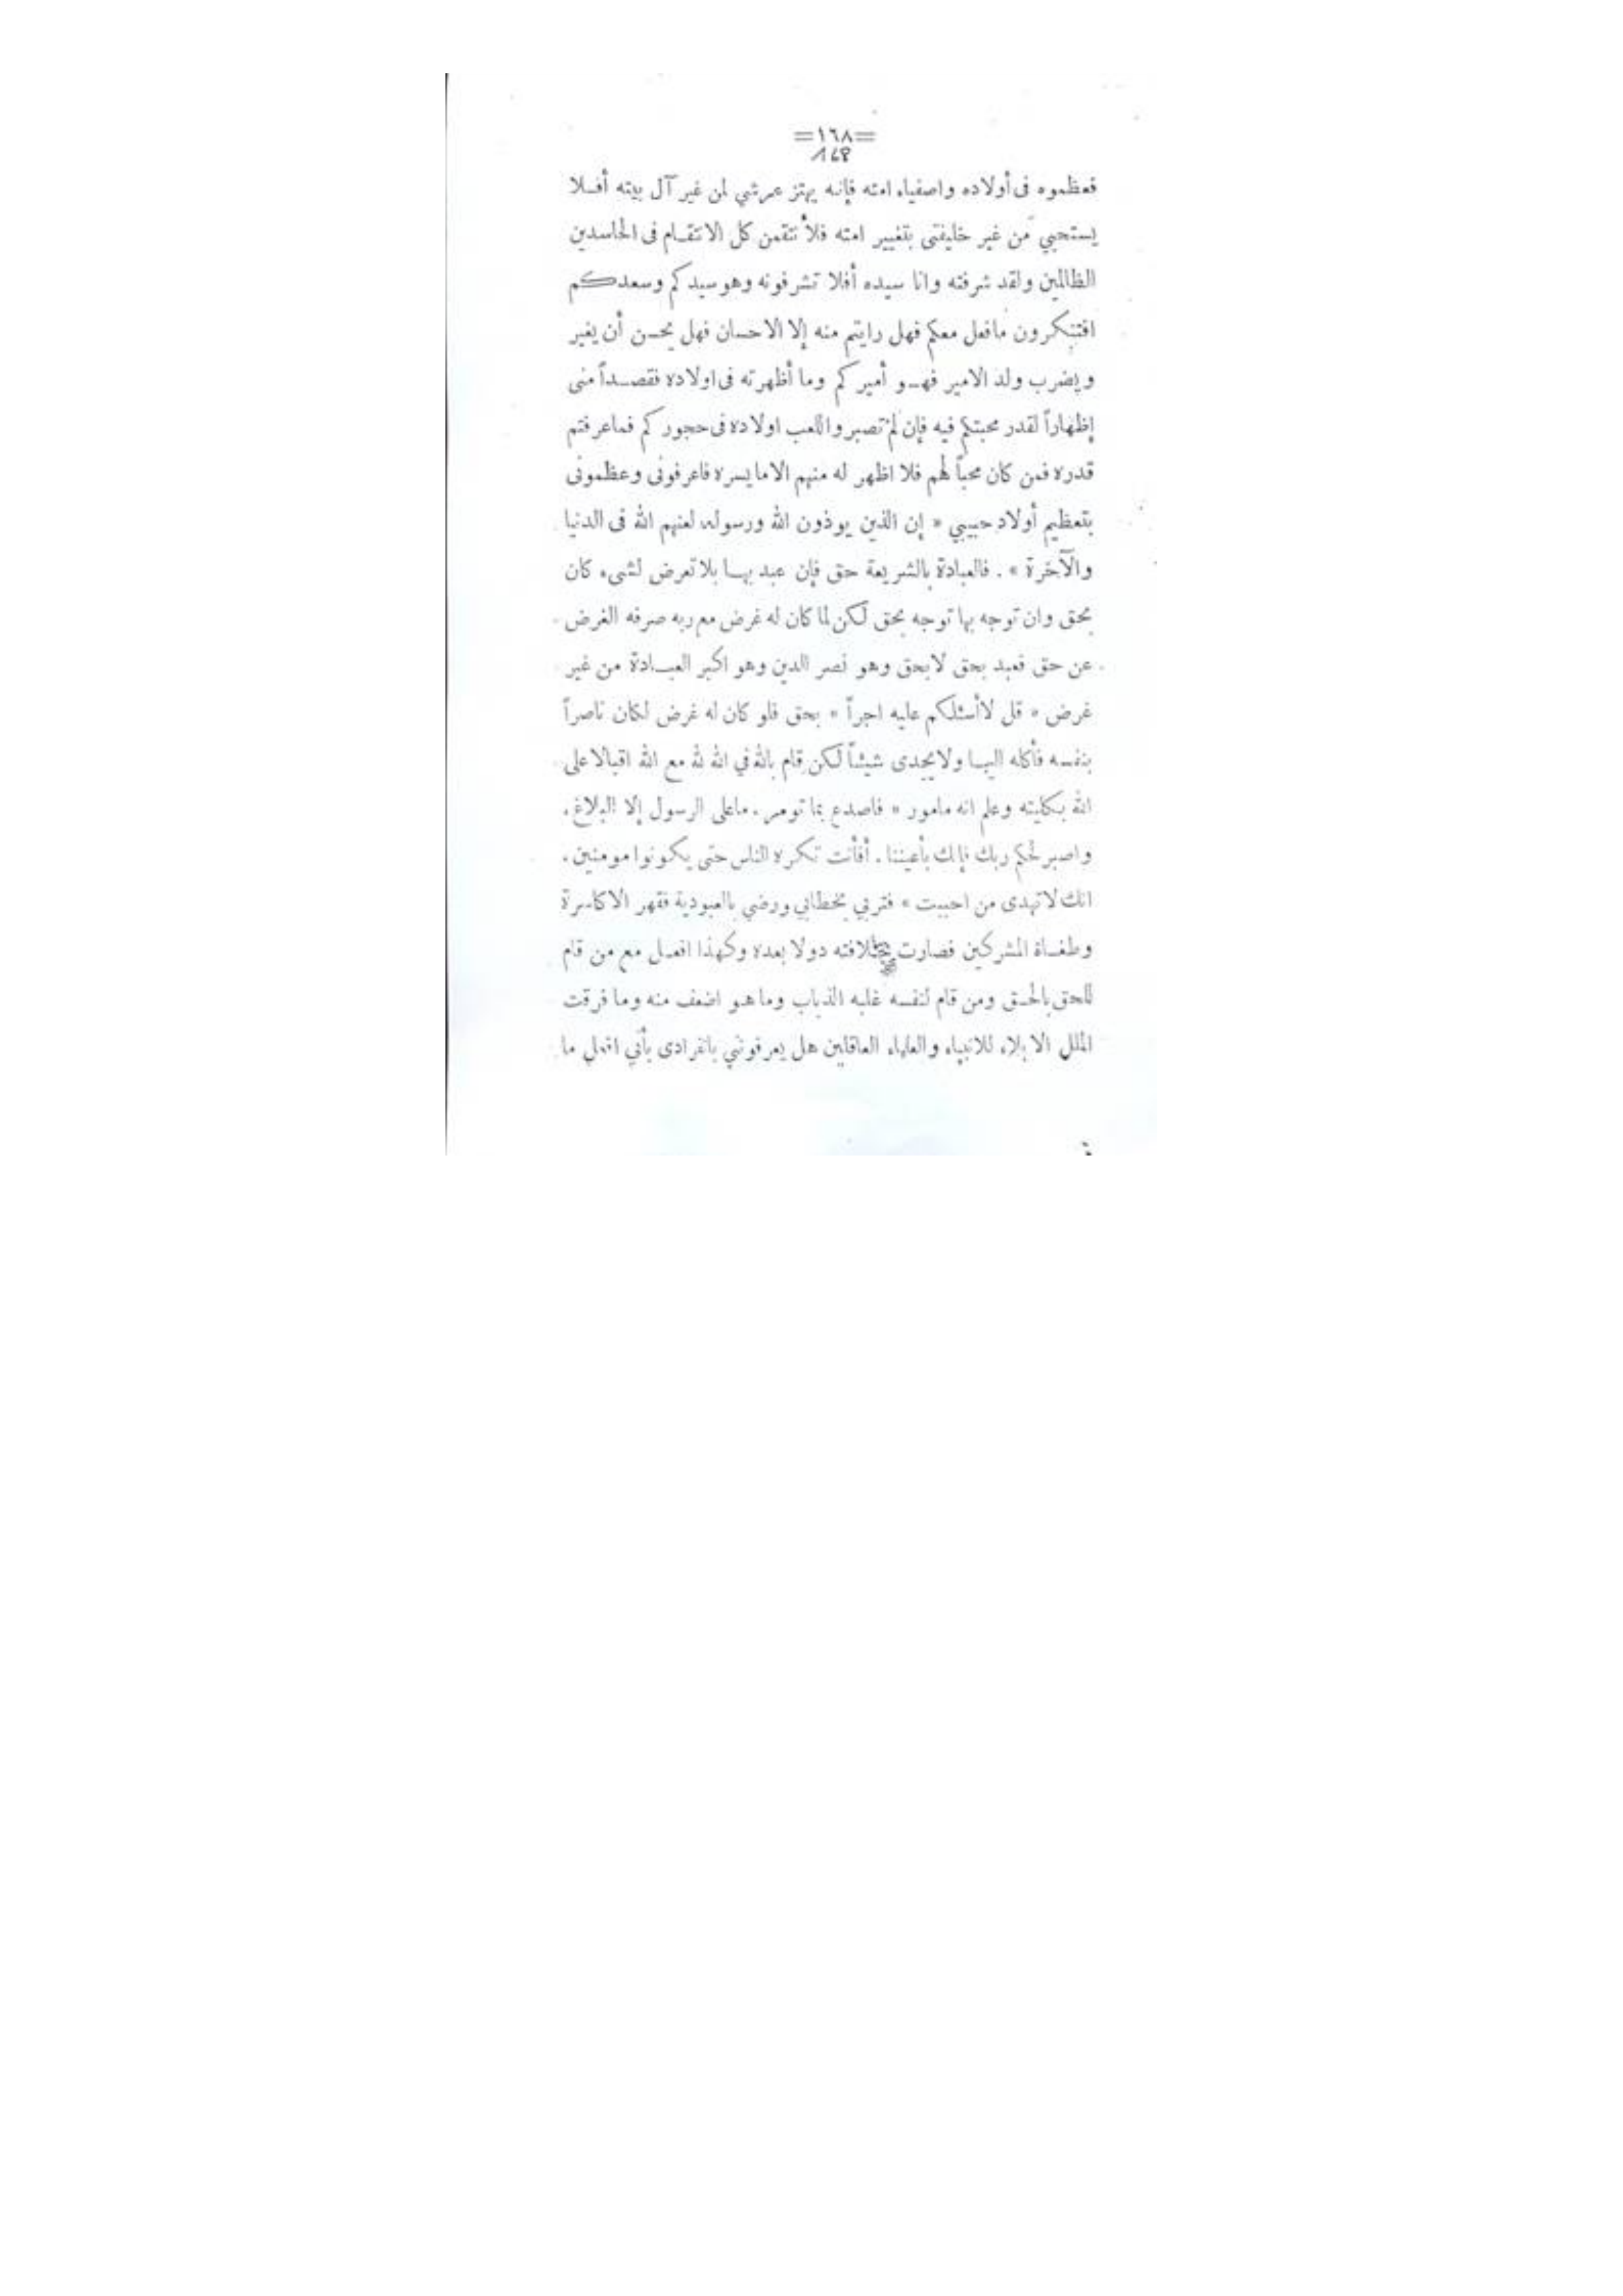 =١٦٨=
168
فعظموه فى أولاده واصفياء امته فإنه يهتز عرشي لمن غير آل بيته أفلا
يستحيي من غير خليفتى بتغيير امته فلأنتقمن كل الانتقام فى الحاسدين
الظالمين ولقد شرفته وانا سيده أفلا تشرفونه وهو سيدكم وسعدكم
افتنكرون مافعل معكم فهل رايتم منه إلا الاحسان فهل يحسن أن يغير
ويضرب ولد الامير فهو أميركم وما أظهرته فى اولاده فقصداً منى
إظهاراً لقدر محبتكم فيه فإن لم تصبروا للعب اولاده فى حجوركم فماعرفتم
قدره فمن كان محباً لهم فلا اظهر له منهم الا مايسره فاعرفونى وعظمونى
بتعظيم أولاد حبيبي « إن الذين يوذون الله ورسوله لعنهم الله فى الدنيا
والآخرة » . فالعبادة بالشريعة حق فإن عبد بها بلاتعرض لشىء كان
بحق وان توجه بها توجه بحق لكن لما كان له غرض مع ربه صرفه الغرض
عن حق فعبد بحق لابحق وهو نصر الدين وهو اكبر العبادة من غير
غرض « قل لاأسئلكم عليه اجراً » بحق فلو كان له غرض لكان ناصراً
بنفسه فأكله ولايجدى شيئاً لكن قام بالله في الله لله مع الله اقبالا على
الله بكليته وعلم انه مامور « فاصدع بما تومر . ماعلى الرسول إلا البلاغ .
واصبر لحكم ربك فإنك بأعيننا . أفأنت تكره الناس حتى يكونوا مومنين .
انك لاتهدى من احببت » فتربي بخطابي ورضي بالعبودية فقهر الاكاسرة
وطغاة المشركين فصارت دولا بعده وكهذا افعل مع من قام
للحق بالحق ومن قام لنفسه غلبه الذباب وما هو اضعف منه وما فرقت
الملل الا بلاء للانبياء والعلماء العاقلين هل يعرفونني بانفرادى بأني افعل ما